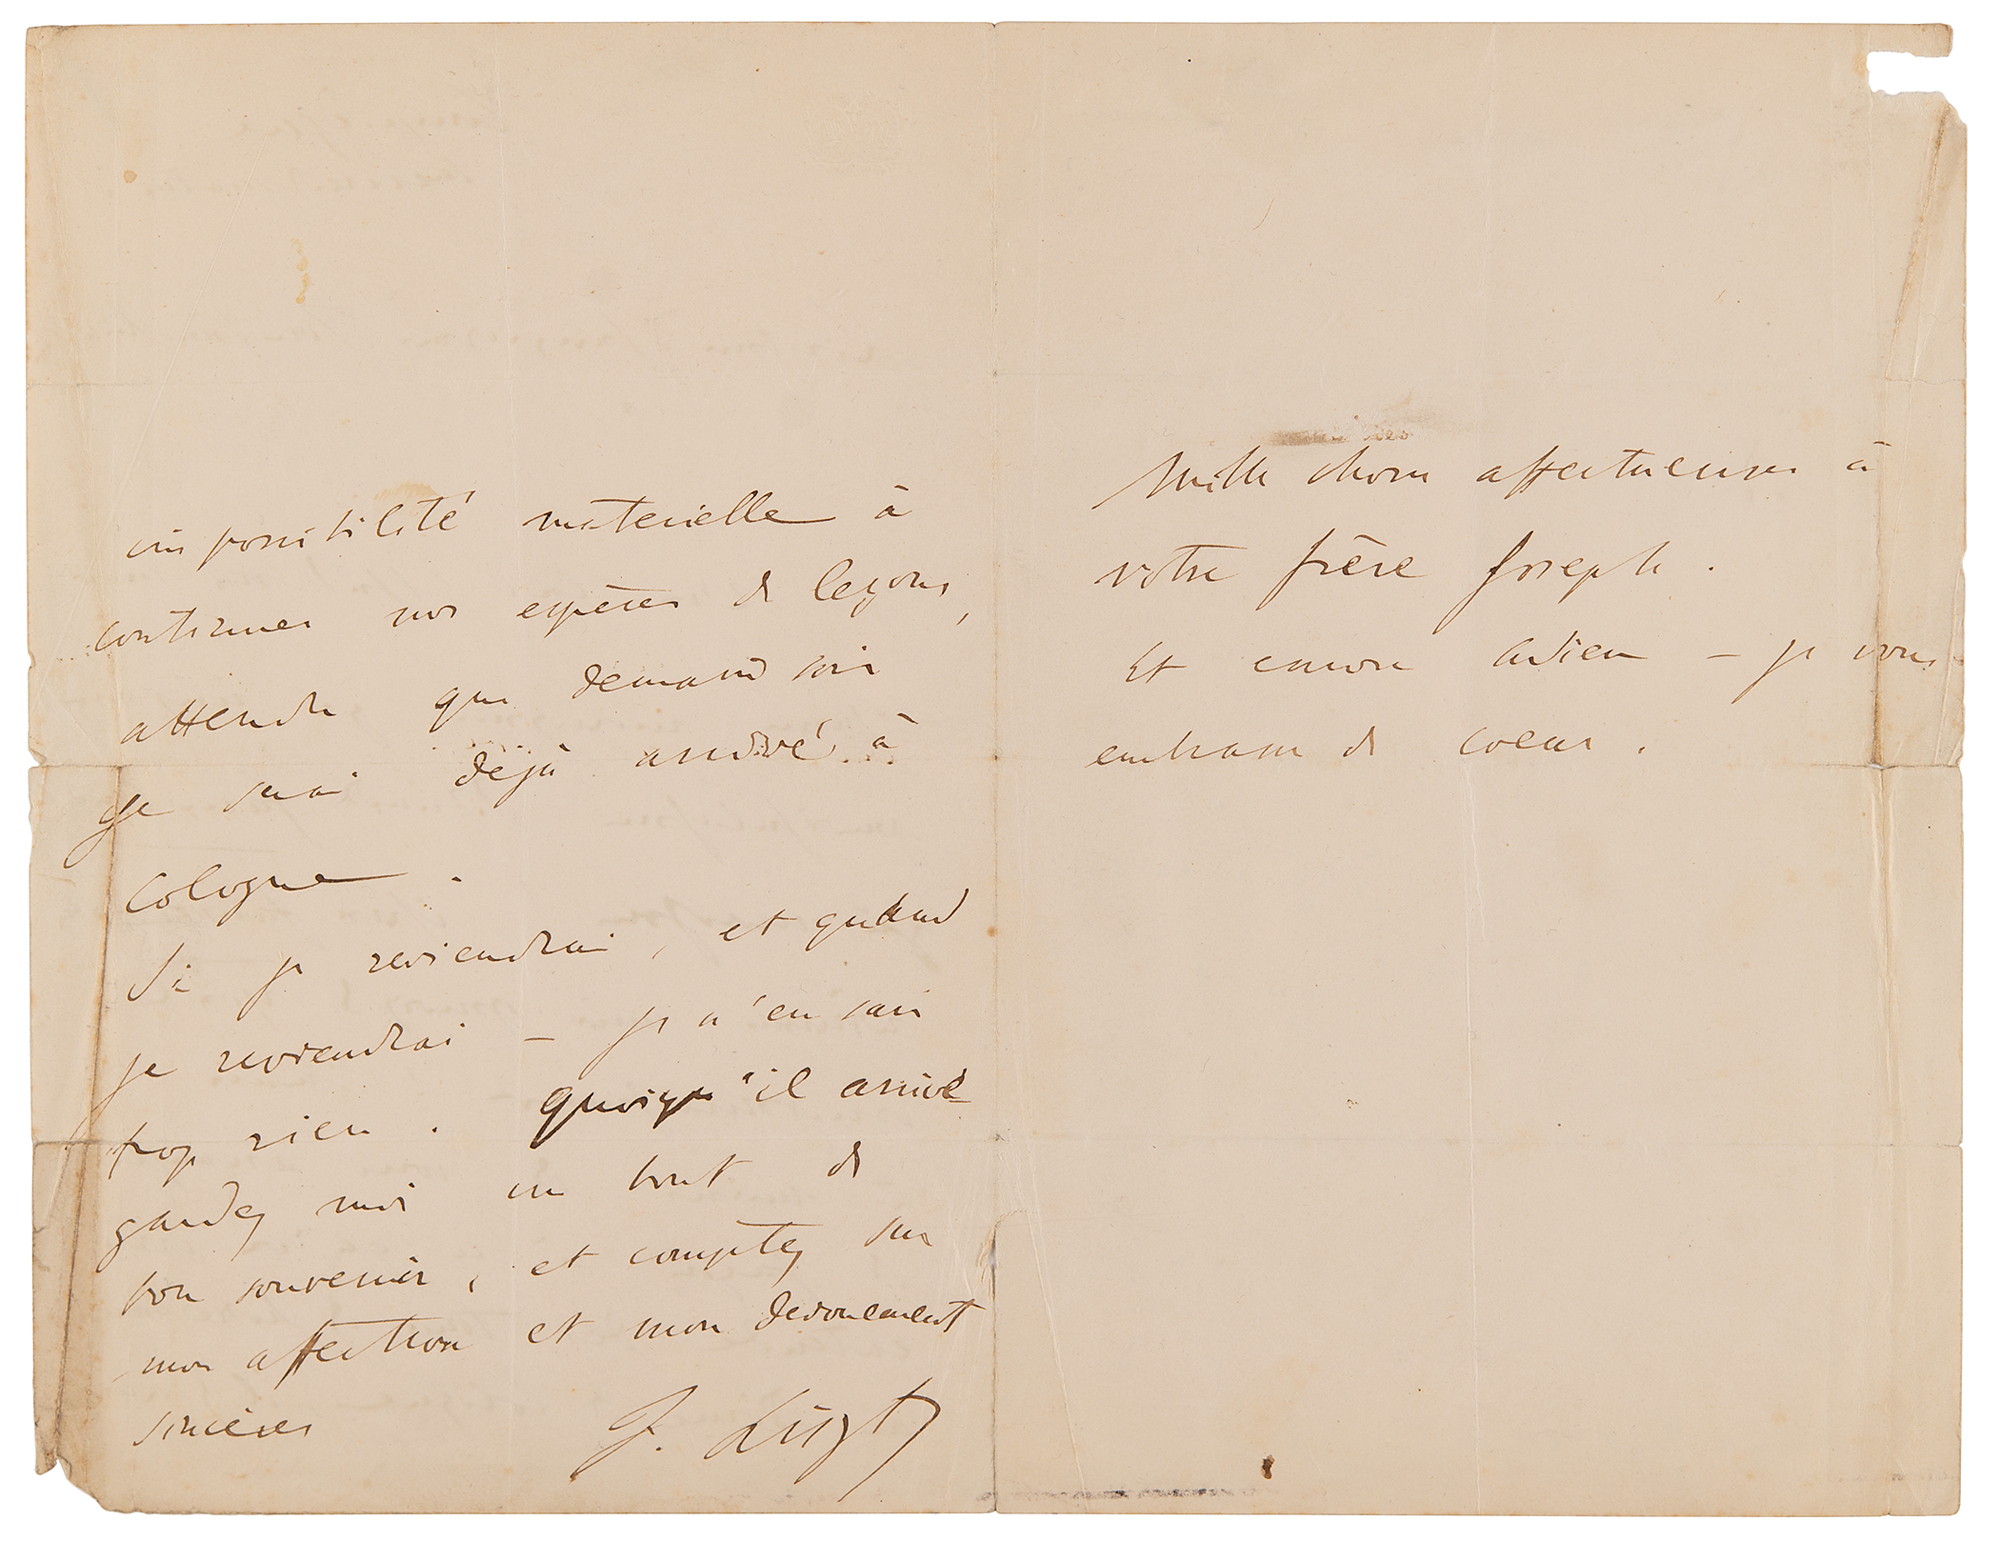 impossibilité materielle à
continuer nos espèces de leçons,
attendu que demain soir
je serai déjà arrivé à
Cologne.
Si je reviendrai, et quand
je reviendrai – je n'en sais
trop rien. Quoiqu'il arrive
gardez moi un bout de
bon souvenir, et comptez sur
mon affection et mon devouement
sincères
F. Liszt
Mille choses affectueuses à
votre frère Joseph.
Et encore adieu – je vous
embrasse de coeur.